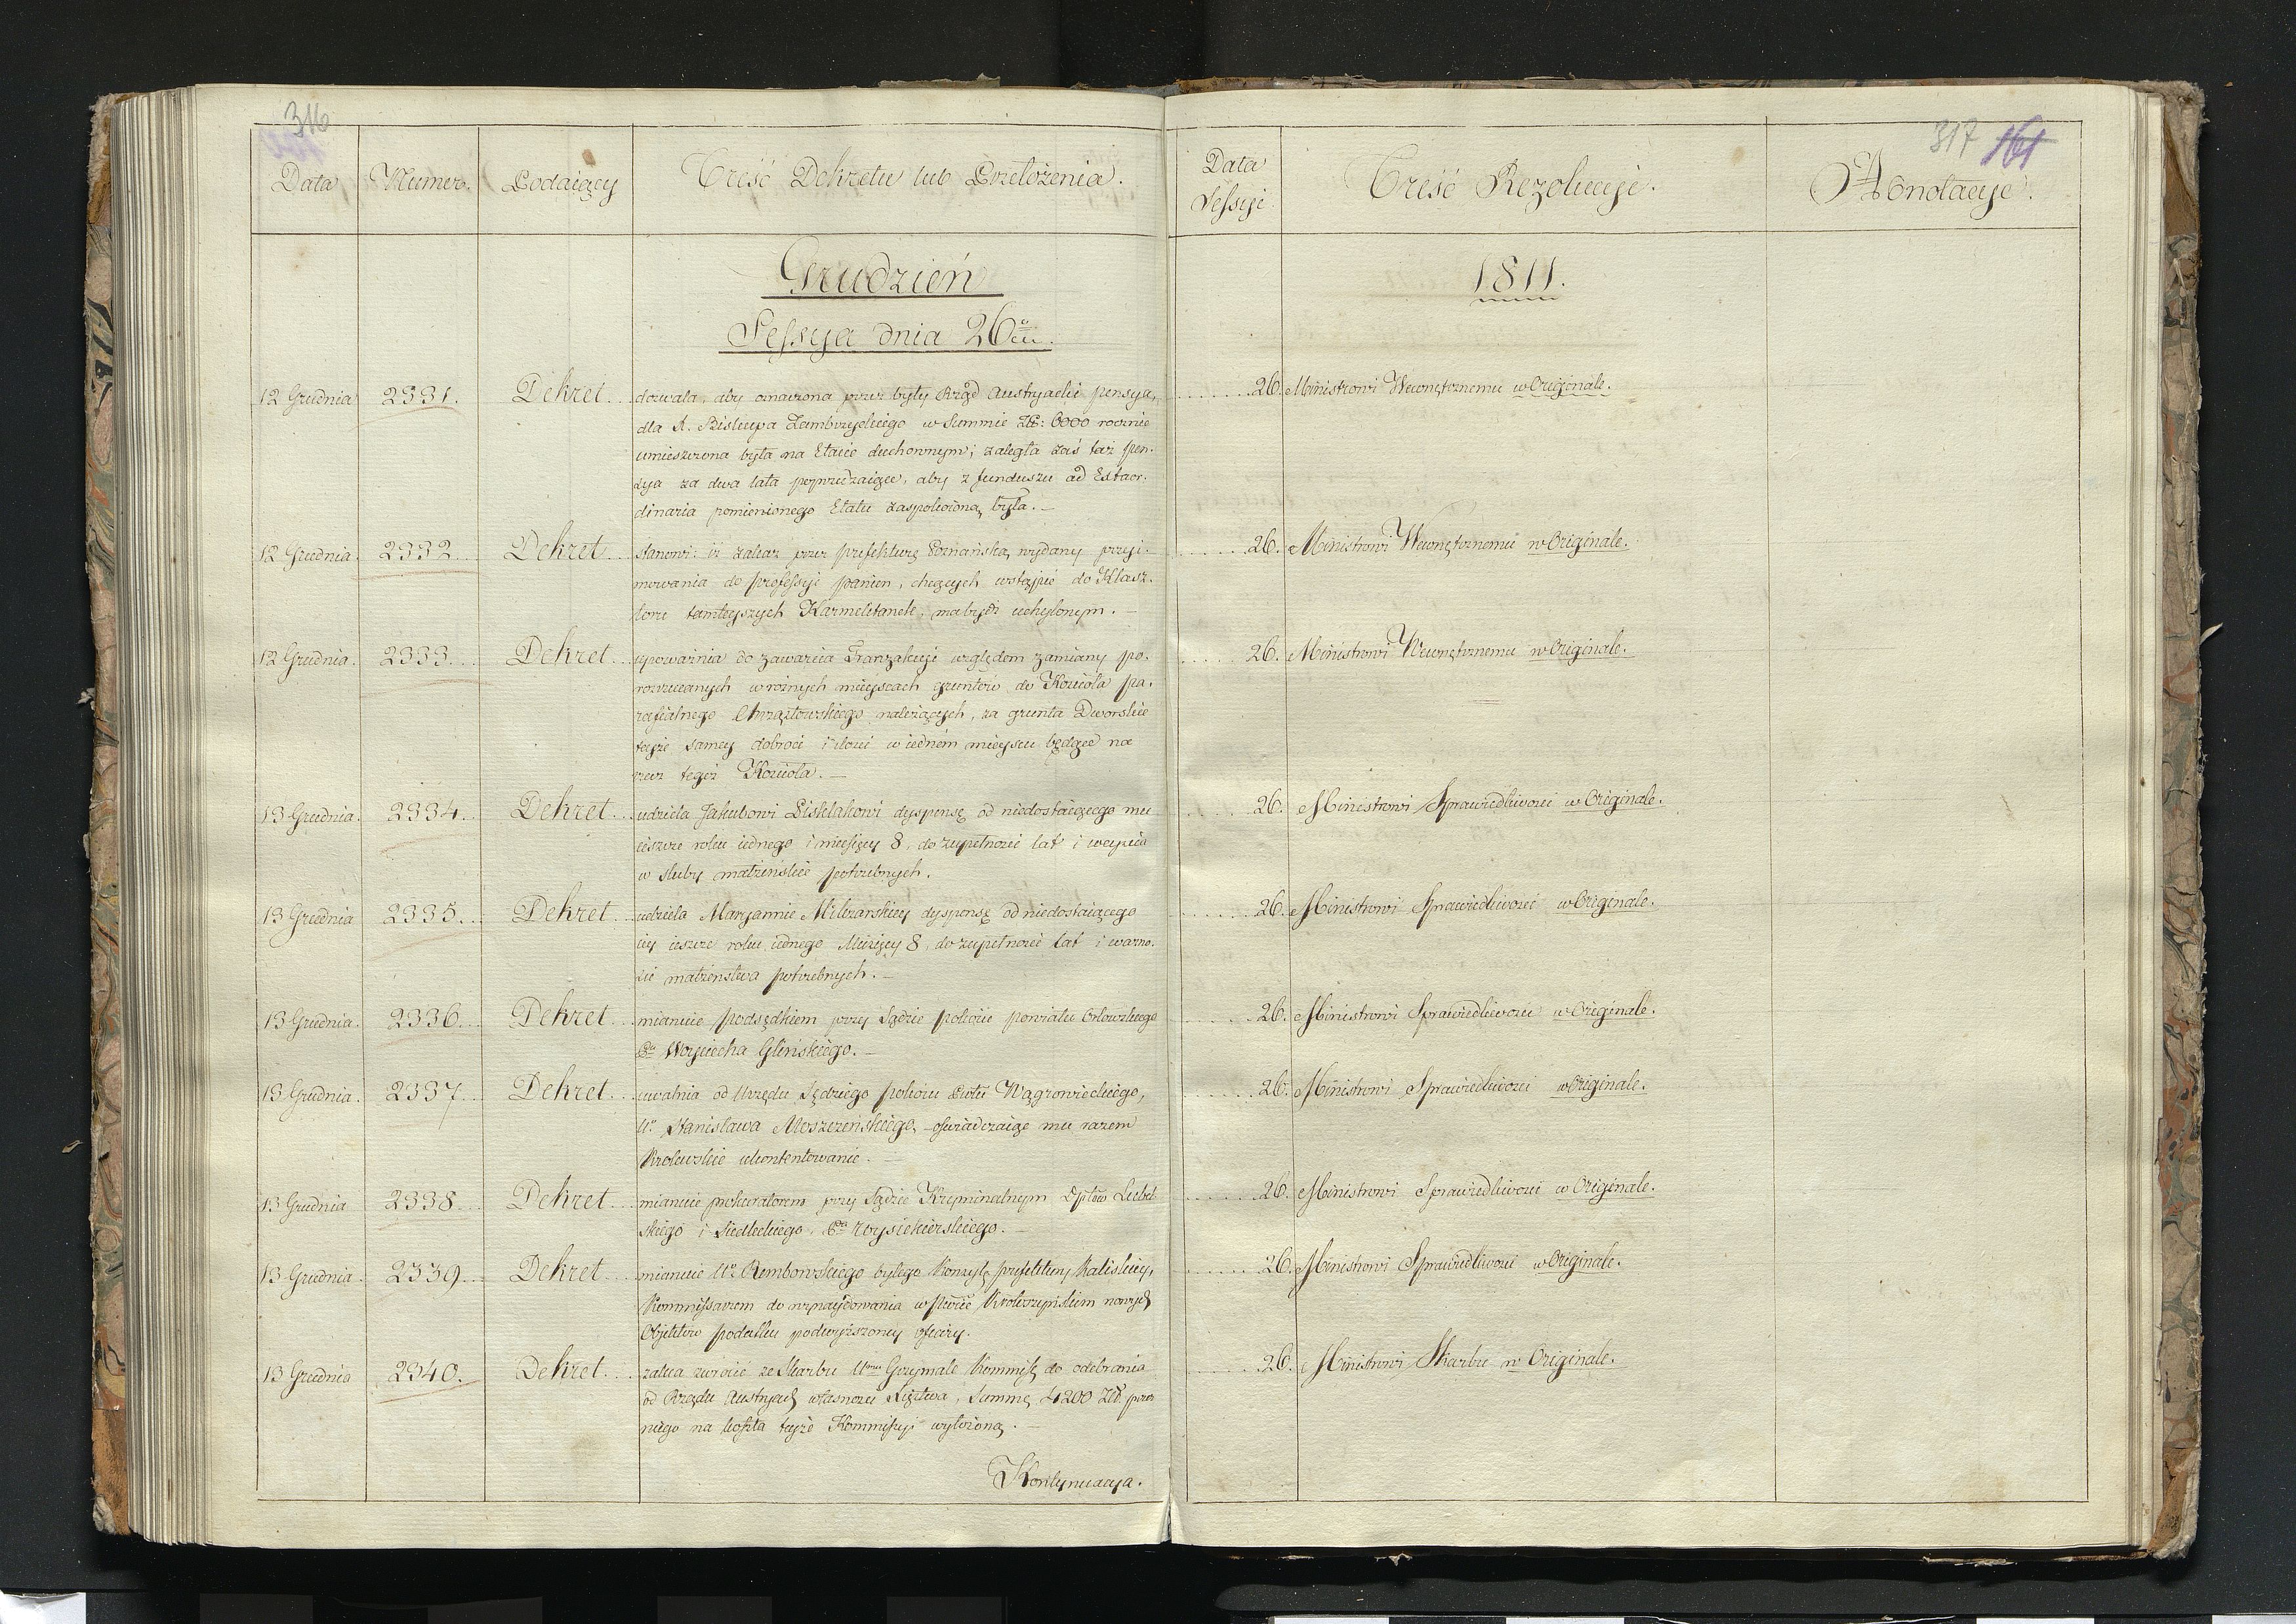 316
Data
Numer.
Podaiący
Treść Dekretu lub Przełożenia.
Data Sessyi
Treść Rezolucyi.
317 161
Adnotacye.
Grudzień
1811.
Sessya dnia 26
12 Grudnia 2331. Dekret dozwala, aby oznaczona przez były Rząd Austryacki pensya,
dla X. Biskupa Zambrzyckiego w Summie Zł: 6000 rocznie
umieszczona była na Etacie duchownym; zaległa zaś taż pen-
sya za dwa lata poprzedzaiące, aby z funduszu ad Extraor-
dinaria pomienionego Etatu zaspokoioną była. —
26. Ministrowi Wewnętrznemu w Originale.
12 Grudnia. 2332 Dekret stanowi: iż zakaz przez prefekturę Poznańską wydany przyi-
mowania do professyi panien, chcących wstąpić do Klasz-
toru tamteyszych Karmelitanek, ma bydź uchylonym. —
26. Ministrowi Wewnętrznemu w Originale.
12 Grudnia. 2333. Dekret upoważnia do zawarcia Tranzakcyi względem zamiany po-
rozrzucanych w rożnych mieyscach gruntów do Kościoła pa-
rafialnego Chrząstowskiego należących, za grunta Dworskie
teyże samey dobroci i ilości w iedném mieyscu będące na
rzecz tegoż Kościoła. —
26. Ministrowi Wewnętrznemu w Originale.
13 Grudnia. 2334. Dekret udziela Jakubowi Pisklakowi dyspensę od niedostaiącego mu
ieszcze roku iednego i miesięcy 8, do zupełności lat i weyścia
w śluby małżeńskie potrzebnych.
26. Ministrowi Sprawiedliwości w Originale.
13 Grudnia 2335. Dekret udziela Maryannie Milczarskiey dyspensę od niedostaiącego
iey ieszcze roku iednego Miesięcy 8, do zupełności lat i ważno-
ści małżeństwa potrzebnych. —
26. Ministrowi Sprawiedliwości w Originale.
13 Grudnia. 2336. Dekret mianuie podsędkiem przy Sądzie pokoiu powiatu Orłowskiego
Woyciecha Glińskiego. —
26. Ministrowi Sprawiedliwości w Originale.
13 Grudnia. 2337. Dekret uwalnia od Urzędu Sędziego pokoiu Pwtu Wągrowieckiego,
Ur. Stanisława Moszczeńskiego, oświadczaiąc mu razem
Krolewskie ukontentowanie. —
26. Ministrowi Sprawiedliwości w Originale.
13 Grudnia 2338. Dekret mianuie prokuratorem przy Sądzie Kryminalnym Dptów Lubel-
skiego i Siedleckiego, Woysiekierskiego. —
26. Ministrowi Sprawiedliwości w Originale.
13 Grudnia. 2339. Dekret mianuie Ur. Rembowskiego byłego Konsyl. prefektury Kaliskiey,
Kommissarzem do wynaydowania w pwcie Krotoszyńskim nowych
Objektów podatku podwyższoney ofiary.
26. Ministrowi Sprawiedliwości w Originale.
13 Grudnia 2340. Dekret zaleca zwrócić ze Skarbu Grzymale Kommis. do odebrania
od Rządu Austryack własności Xięstwa, Summę 4200 Złł. przez
niego na koszta teyże Kommissyi wyłożoną. —
26. Ministrowi Skarbu w Originale.
Kontynuacya.